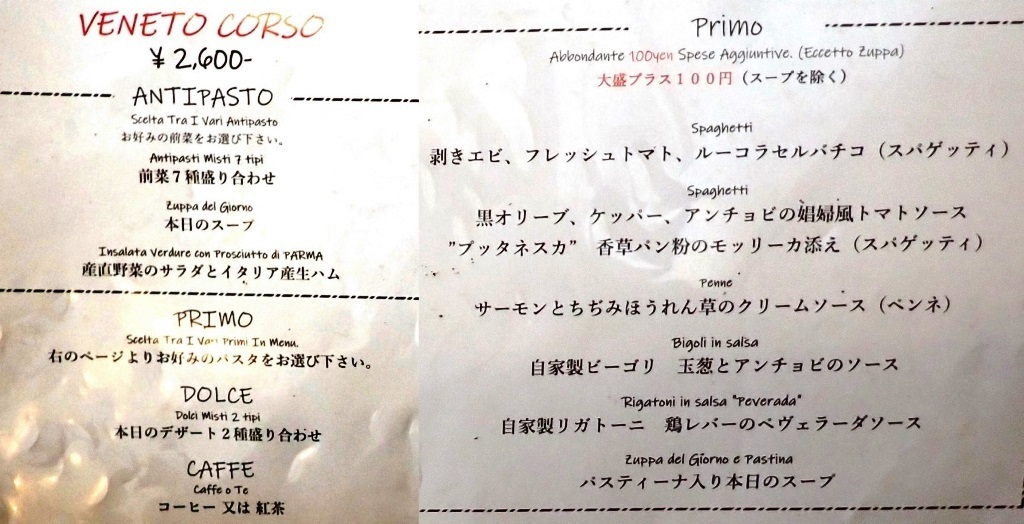 VENETO CORSO
¥ 2,600-
ANTIPASTO
Scelta Tra I Vari Antipasto
お好みの前菜をお選び下さい。
Antipasti Misti 7 tipi
前菜７種盛り合わせ
Zuppa del Giorno
本日のスープ
Insalata Verdure con Prosciutto di PARMA
産直野菜のサラダとイタリア産生ハム
PRIMO
Scelta Tra I Vari Primi In Menu.
右のページよりお好みのパスタをお選び下さい。
DOLCE
Dolci Misti 2 tipi
本日のデザート２種盛り合わせ
CAFFE
Caffe o Te
コーヒー 又は 紅茶
Primo
Abbondante 100yen Spese Aggiuntive. (Eccetto Zuppa)
大盛プラス１００円（スープを除く）
Spaghetti
剥きエビ、フレッシュトマト、ルーコラセルバチコ（スパゲッティ）
Spaghetti
黒オリーブ、ケッパー、アンチョビの娼婦風トマトソース
”プッタネスカ”　香草パン粉のモッリーカ添え（スパゲッティ）
Penne
サーモンとちぢみほうれん草のクリームソース（ペンネ）
Bigoli in salsa
自家製ビーゴリ　玉葱とアンチョビのソース
Rigatoni in salsa "Peverada"
自家製リガトーニ　鶏レバーのペヴェラーダソース
Zuppa del Giorno e Pastina
パスティーナ入り本日のスープ